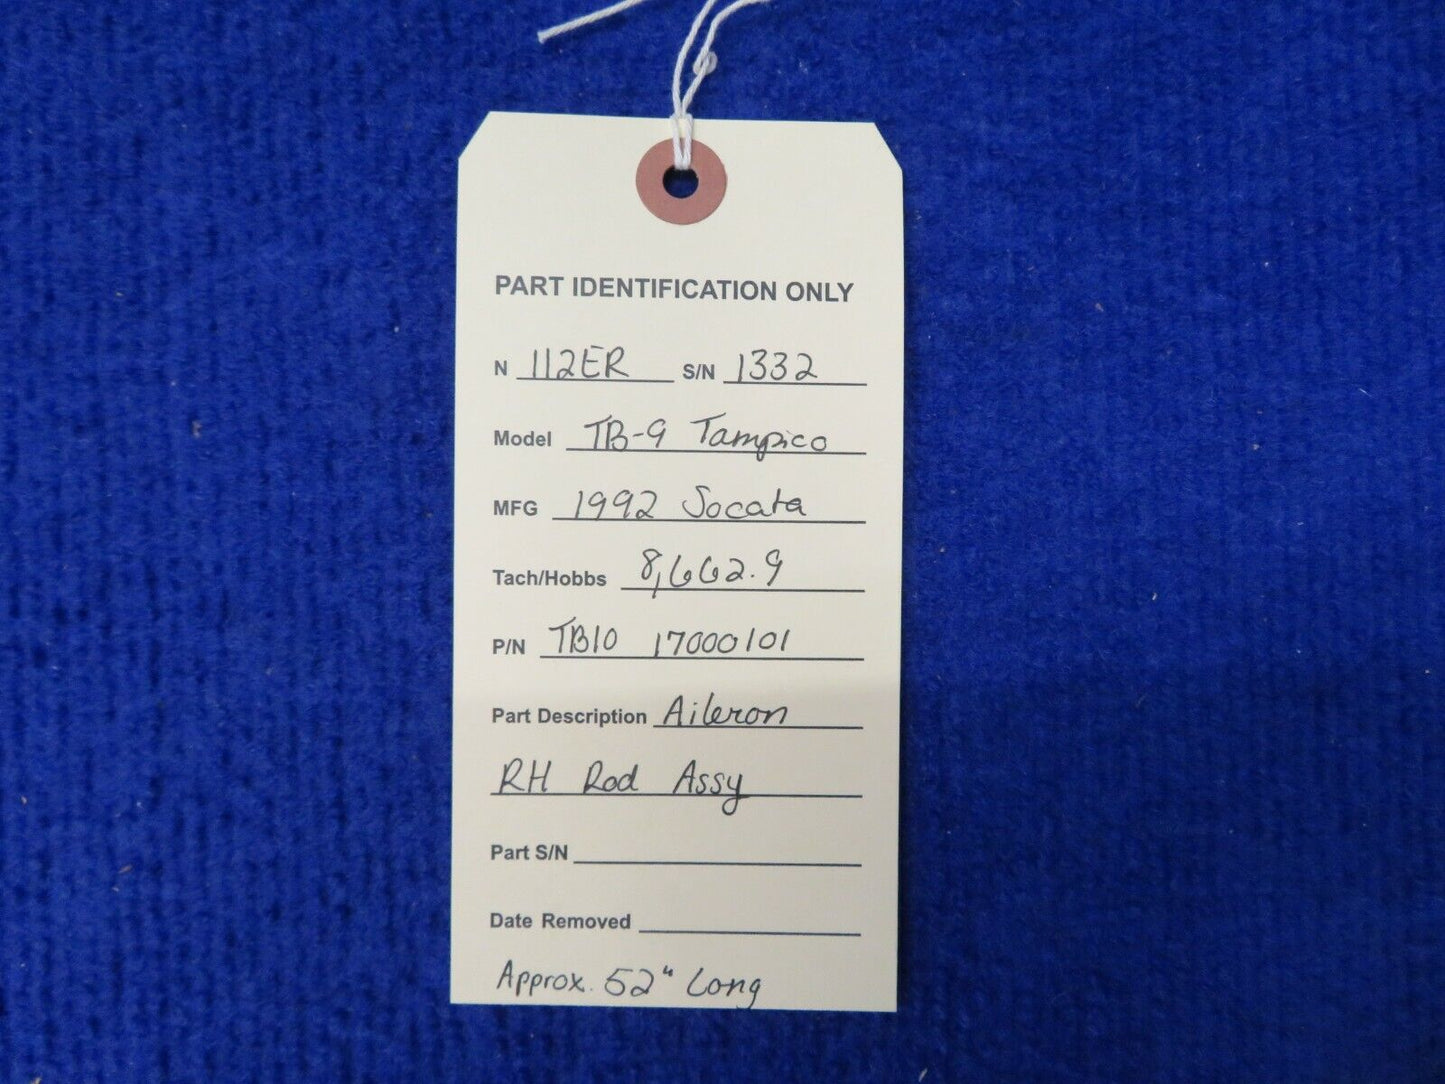 PART IDENTIFICATION ONLY
N 112ER S/N 1332
Model TB-9 Tampico
MFG 1992 Socata
Tach/Hobbs 8,662.9
P/N TB10 17000101
Part Description Aileron
RH Rod Assy
Part S/N
Date Removed
Approx. 52" Long